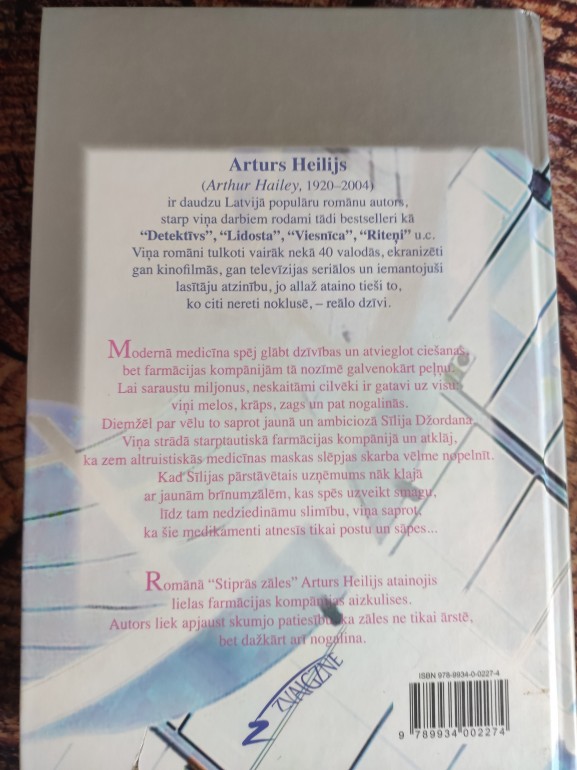 Arturs Heilijs
(Arthur Hailey, 1920–2004)
ir daudzu Latvijā populāru romānu autors,
starp viņa darbiem rodami tādi bestselleri kā
“Detektīvs”, “Lidosta”, “Viesnīca”, “Riteņi” u.c.
Viņa romāni tulkoti vairāk nekā 40 valodās, ekranizēti
gan kinofilmās, gan televīzijas seriālos un iemantojuši
lasītāju atzinību, jo allaž ataino tieši to,
ko citi nereti noklusē, – reālo dzīvi.
Modernā medicīna spēj glābt dzīvības un atvieglot ciešanas,
bet farmācijas kompānijām tā nozīmē galvenokārt peļņu.
Lai saraustu miljonus, neskaitāmi cilvēki ir gatavi uz visu:
viņi melos, krāps, zags un pat nogalinās.
Diemžēl par vēlu to saprot jaunā un ambiciozā Sīlija Džordana.
Viņa strādā starptautiskā farmācijas kompānijā un atklāj,
ka zem altruistiskās medicīnas maskas slēpjas skarba vēlme nopelnīt.
Kad Sīlijas pārstāvētais uzņēmums nāk klajā
ar jaunām brīnumzālēm, kas spēs uzveikt smagu,
līdz tam nedziedināmu slimību, viņa saprot,
ka šie medikamenti atnesīs tikai postu un sāpes...
Romānā “Stiprās zāles” Arturs Heilijs atainojis
lielas farmācijas kompānijas aizkulises.
Autors liek apjaust skumjo patiesību, ka zāles ne tikai ārstē,
bet dažkārt arī nogalina.
ZVAIGZNE
ISBN 978-9934-0-0227-4
9 789934 002274